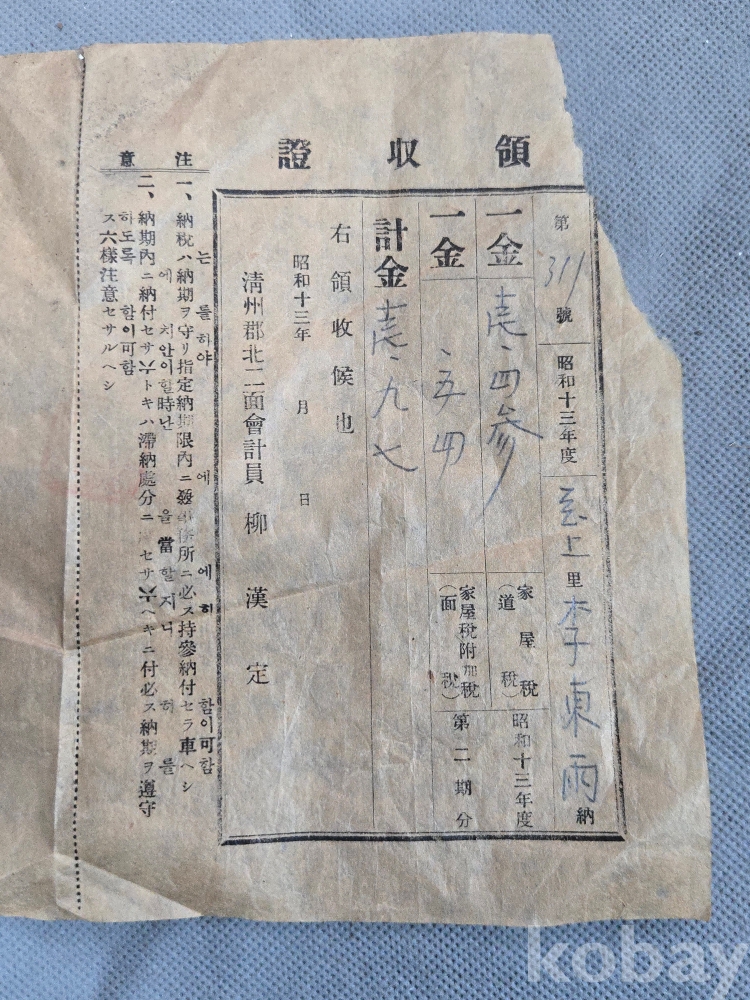 領收證
第311號 昭和十三年度 至上里 李東雨 納
一金 壱、四参 家屋稅(道稅) 昭和十三年度
一金 、五四 家屋稅附加稅(面稅) 第二期分
計金 壱、九七
右領收候也
昭和十三年 月 日
淸州郡北二面會計員 柳漢定
注意
는 를하야 에 에히 함이可함
一、納稅ハ納期ヲ守リ指定納期限內ニ 所ニ必ス持參納付セラ車ヘシ
에 치안이할時난 을當할지니 히 를
二、納期內ニ納付セサ六トキハ滯納處分ニ セサ六ヘキニ付必ス納期ヲ遵守
하도록 함이可함
ス六樣注意セサルヘシ
kobay